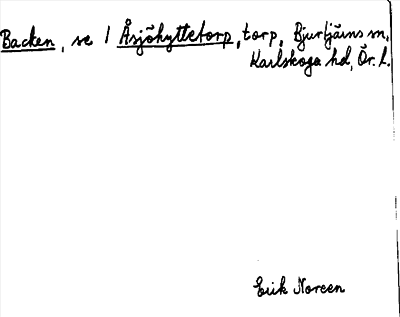 Backen, se / Åsjöhyttetorp, torp, Bjurtjärns sn,
Karlskoga hd, Ör. l.
Erik Noreen